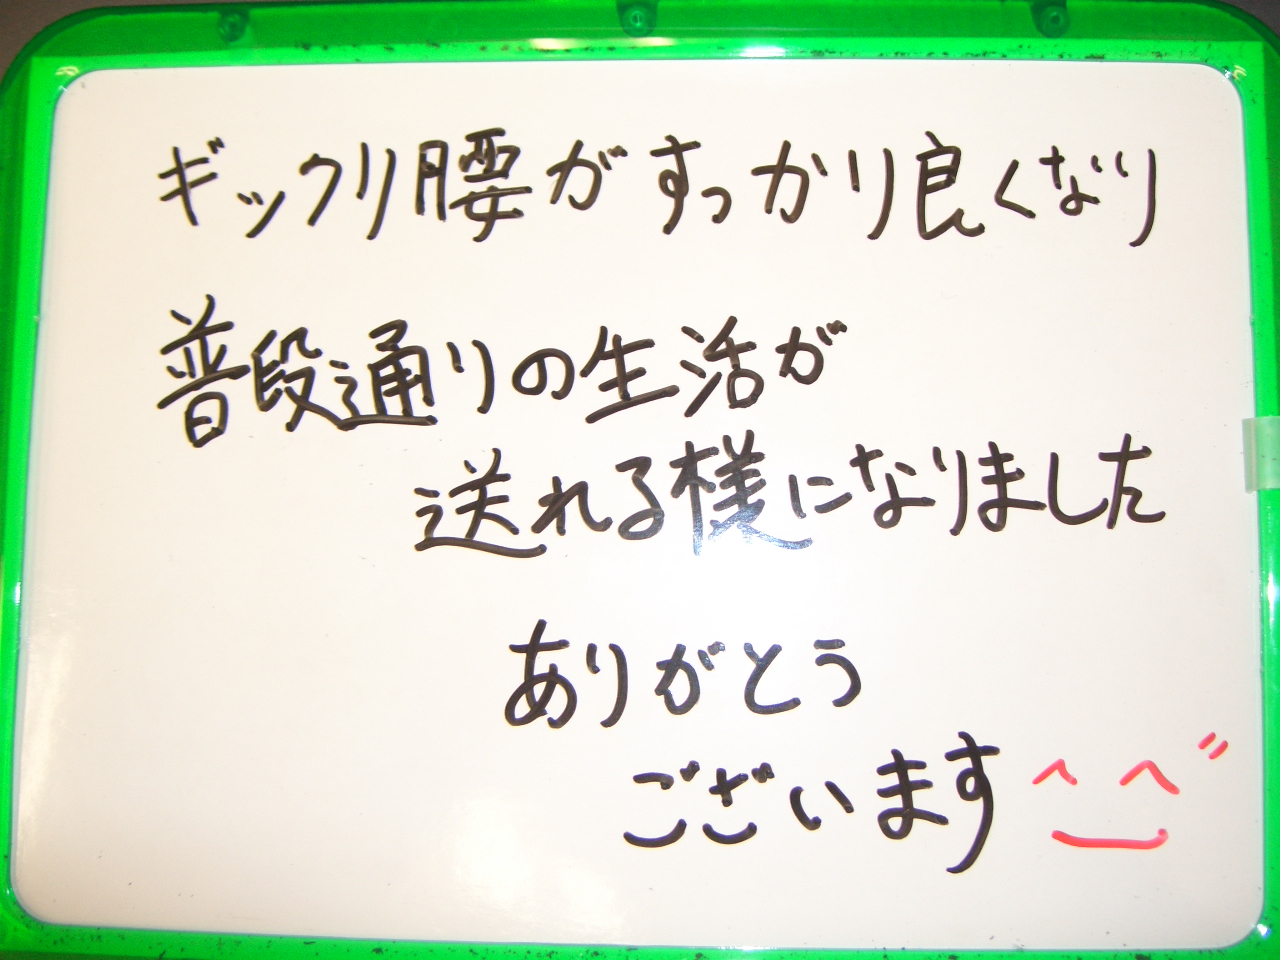 ギックリ腰がすっかり良くなり
普段通りの生活が
送れる様になりました
ありがとう
ございます^_^"